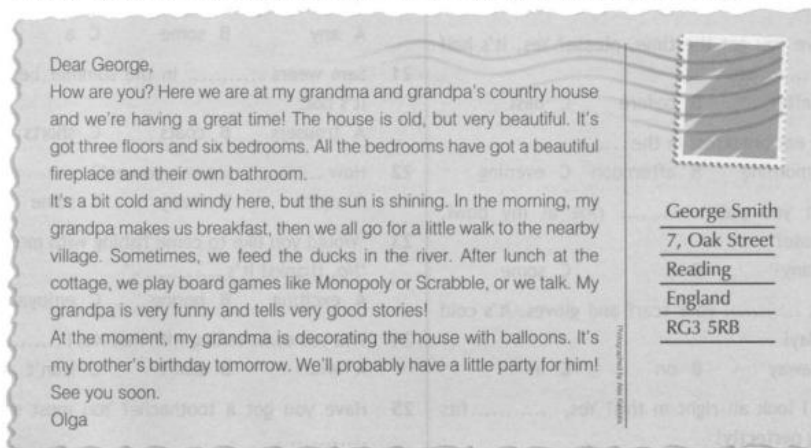 Dear George,
How are you? Here we are at my grandma and grandpa's country house
and we're having a great time! The house is old, but very beautiful. It's
got three floors and six bedrooms. All the bedrooms have got a beautiful
fireplace and their own bathroom.
It's a bit cold and windy here, but the sun is shining. In the morning, my
grandpa makes us breakfast, then we all go for a little walk to the nearby
village. Sometimes, we feed the ducks in the river. After lunch at the
cottage, we play board games like Monopoly or Scrabble, or we talk. My
grandpa is very funny and tells very good stories!
At the moment, my grandma is decorating the house with balloons. It's
my brother's birthday tomorrow. We'll probably have a little party for him!
See you soon.
Olga
George Smith
7, Oak Street
Reading
England
RG3 5RB